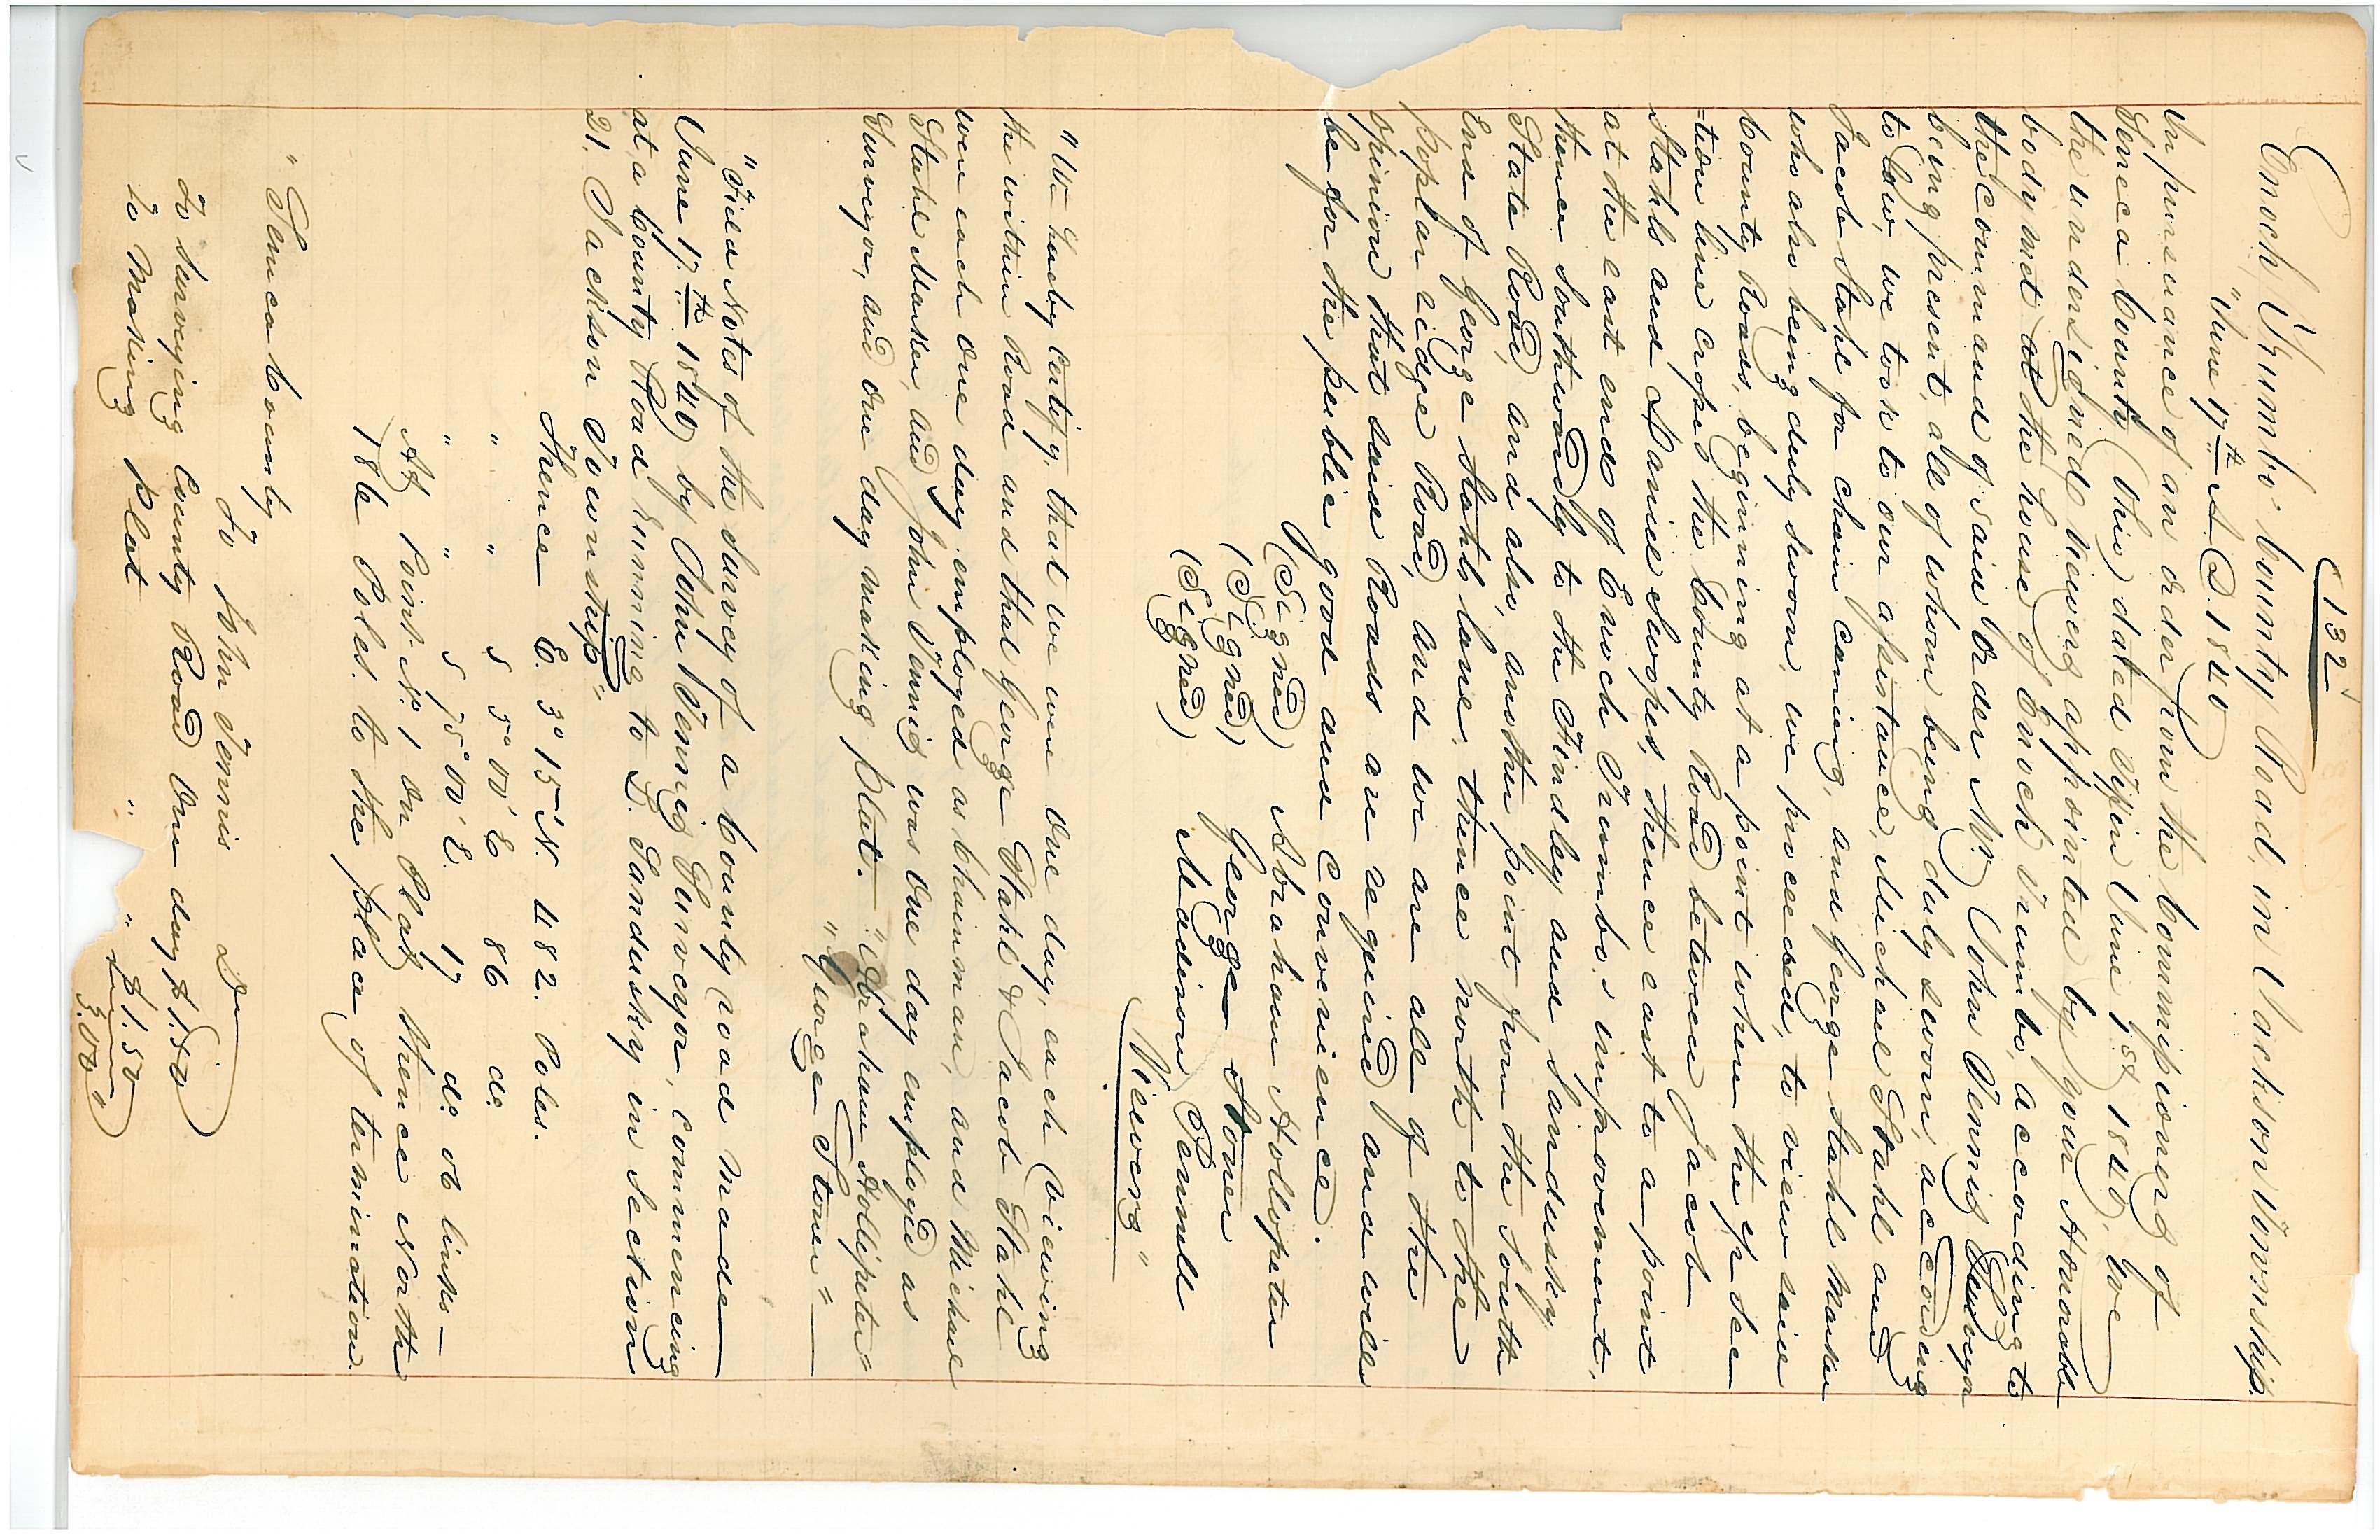 (132
Enoch Trumbo County Road, in Jackson Township.
"June 17th A.D. 1840
In pursuance of an order from the Commissioners of
Seneca County Ohio, dated Tiffin June 1st 1840, we
the undersigned viewers appointed by your Honorable
body met at the house of Enoch Trumbo, according to
the command of said order Mr. John Tennis Surveyor
being present, all of whom being duly sworn, according
to law, we took to our assistance, Michael Stahl and
Jacob Stahl for chain carriing, and George Stahl Marker
who also being duly sworn, we proceeded, to view said
County Roads, beginning at a point when the sp Sec
=tion line crosses the County Road between Jacob
Stahls and Daniel Swopes, thence east to a point
at the east end of Enoch Trumbo,s improvement,
thence Southwardly to the Findley and Sandusky
State Road, and also, another point from the South
End of George Stahls lane, thence north to the
poplar ridge Road, and we are all of the
opinion that said Roads are required and will
be for the public good and convenience.
(Signed) Abraham Hollopeter
(Signed) George Stoner
(Signed) Madison Penwell
Viewers"
"We hereby Certify, that we were one day, each viewing
the within Road and that George Stahl & Jacob Stahl
were each one day employed as Chainman, and Michael
Stahl Marker, and John Tennis was one day employed as
Surveyor, and one day making plat. "Abraham Hollipeter"
"George Stoner"
"Field Notes of the Survey of a County road made
June 17th 1840 by John Tennis Surveyor, commencing
at a County Road running to L. Sandusky in Section
21. Jackson Township"
Thence E. 3° 15' N. 482. Poles.
" " S 5° 00' E 86 do.
" " S 75° 00' E. 17 do. 06 links —
At Point No. 1 on Plat thence North
186 Poles. to the place of termination.
"Seneca County
To John Tennis Dr
To Surveying County Road One day $1.50
to Making plat " " $1.50
3.00"